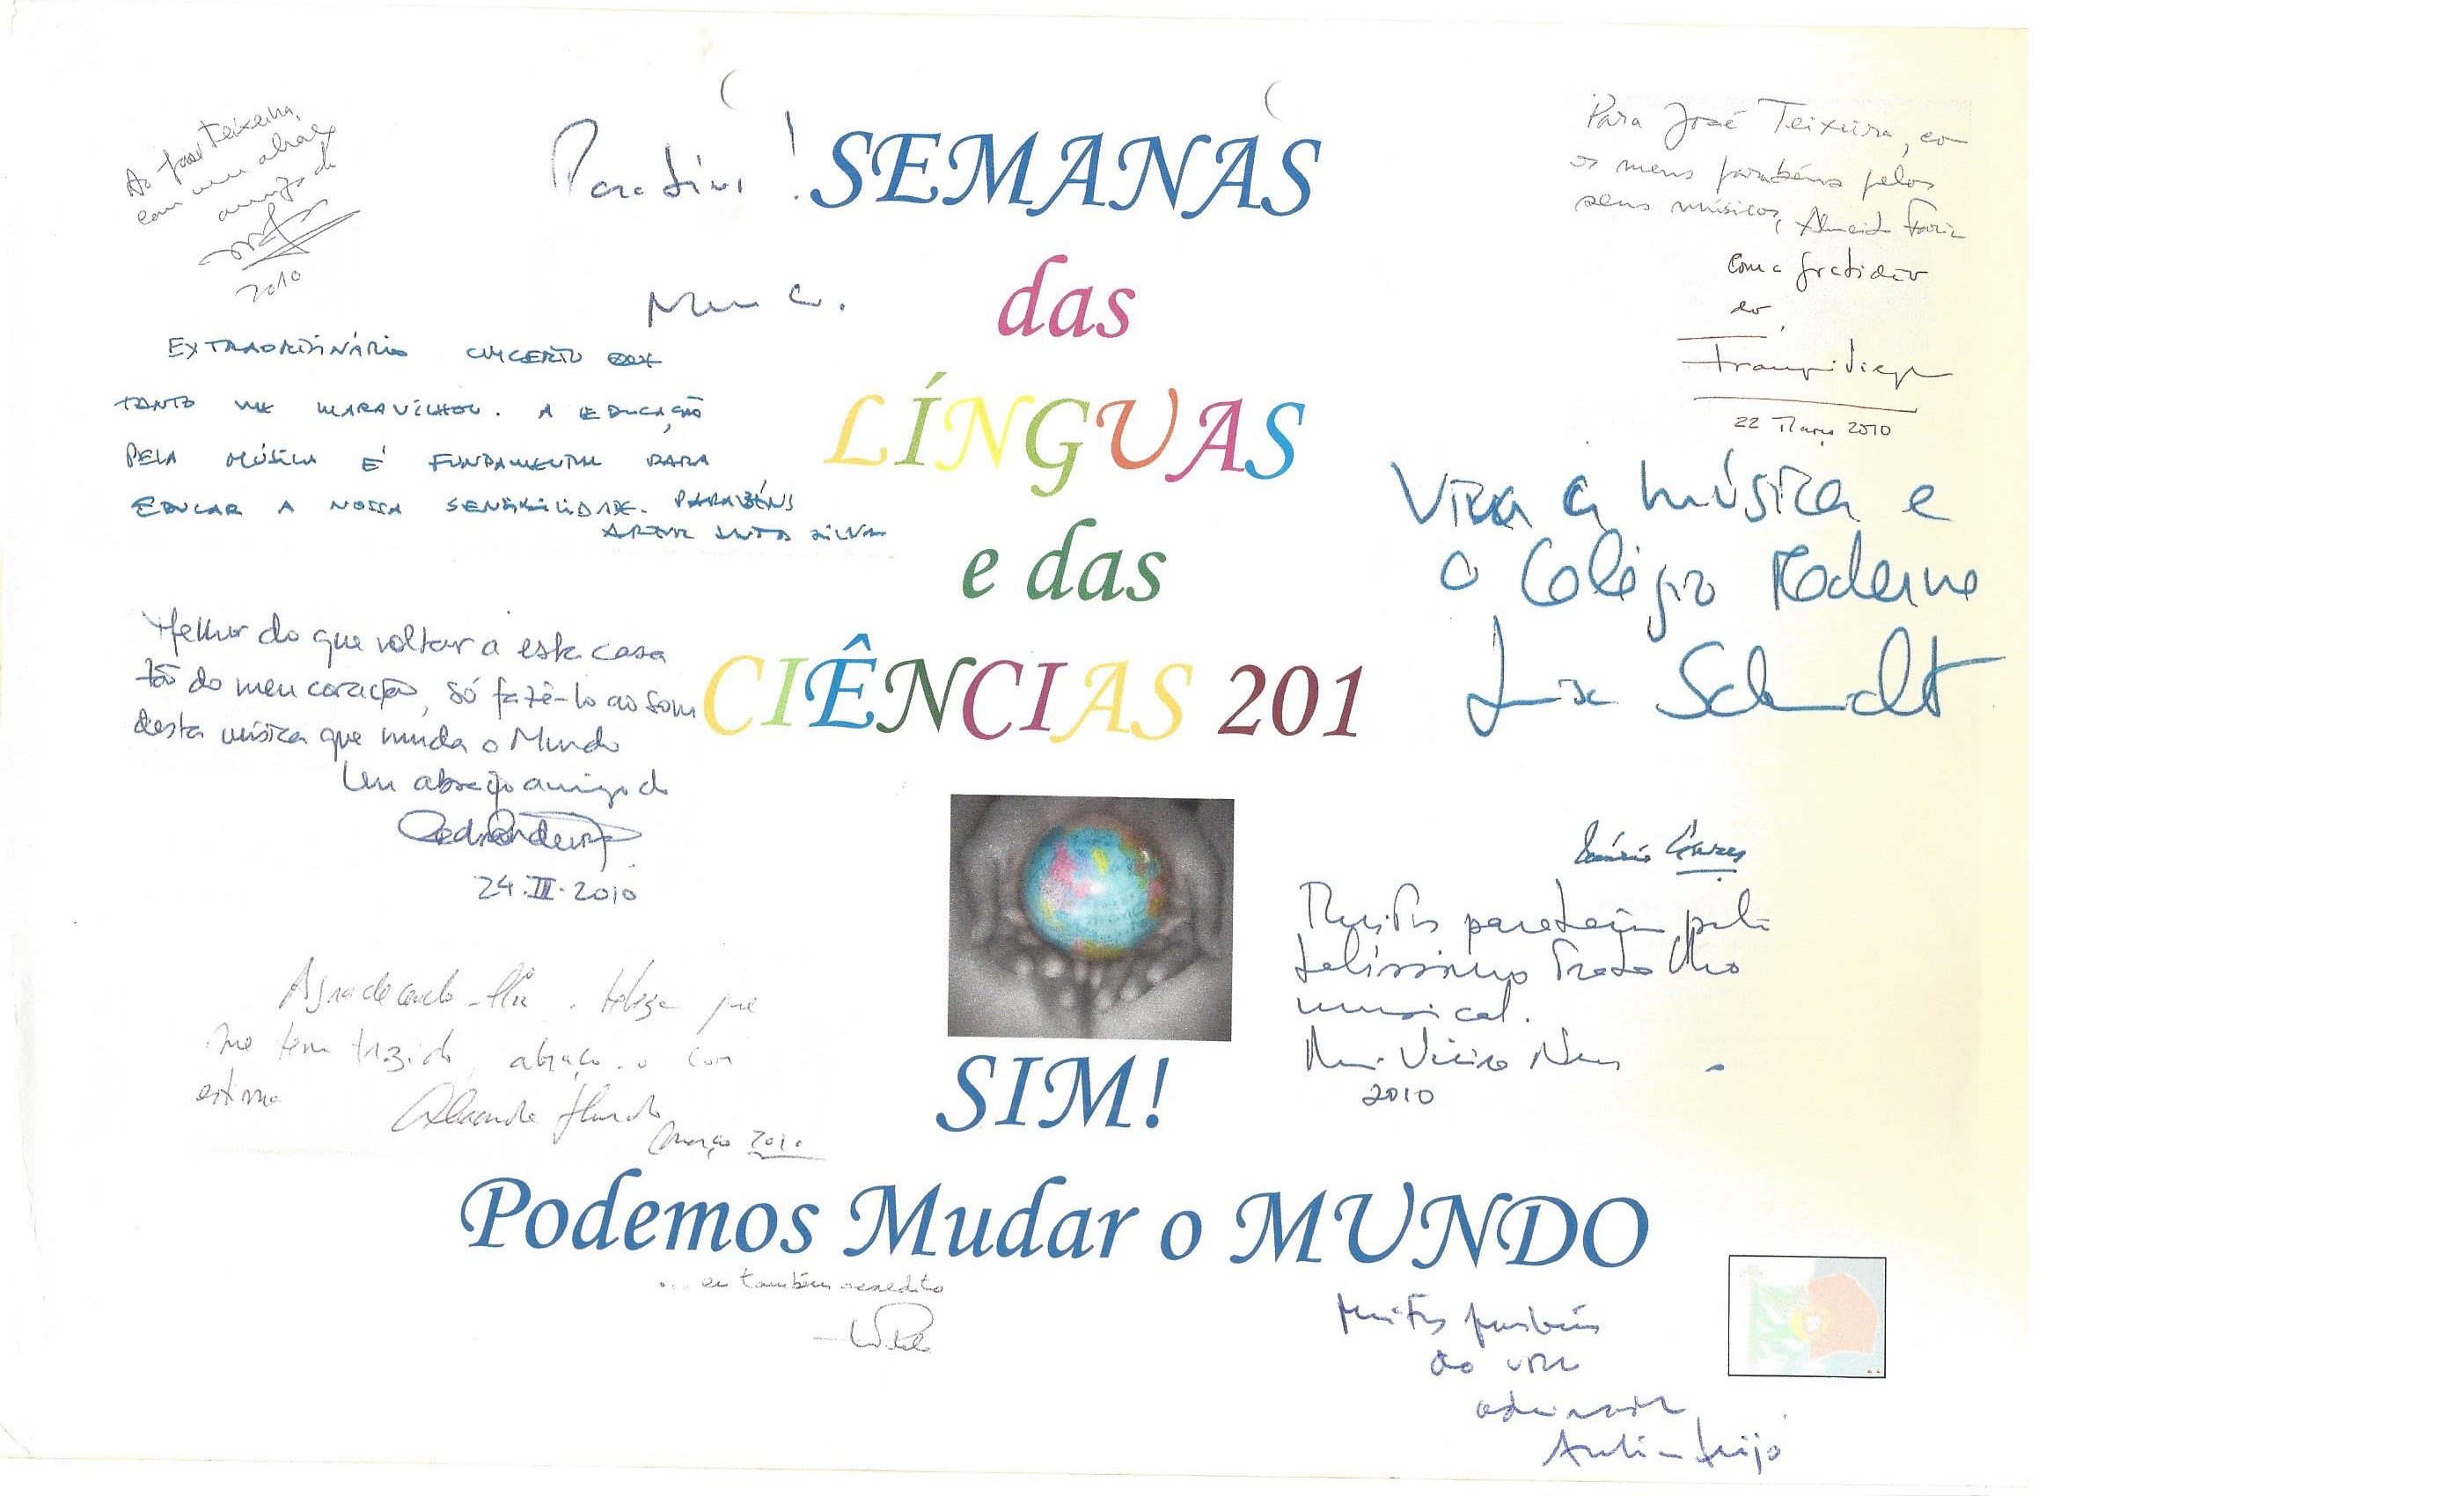 Ao José Teixeira,
com um abraço
amigo de
2010
Parabéns!
EXTRAORDINÁRIO CONCERTO QUE
TANTO ME MARAVILHOU. A EDUCAÇÃO
PELA MÚSICA É FUNDAMENTAL PARA
EDUCAR A NOSSA SENSIBILIDADE. PARABÉNS
ARTUR SANTOS SILVA
Melhor do que voltar a esta casa
tão do meu coração, só fazê-lo ao som
desta música que muda o Mundo
Um abraço amigo do
24.III.2010
Agradecendo-lhe a beleza que
me tem trazido, abraço-o com
estima
Março 2010
SEMANAS
das
LÍNGUAS
e das
CIÊNCIAS 201
SIM!
Podemos Mudar o MUNDO
... eu também acredito
Para José Teixeira, co
os meus parabéns pelos
seus músicos, Almeida Faria
Com a gratidão
do
22 Março 2010
Viva a música e
o Colégio Moderno
Luísa Schmidt
Mário Soares
Muitos parabéns pelo
belíssimo trabalho
musical.
Vieira Nery
2010
Muitos parabéns
do vosso
admirador
António Feijó